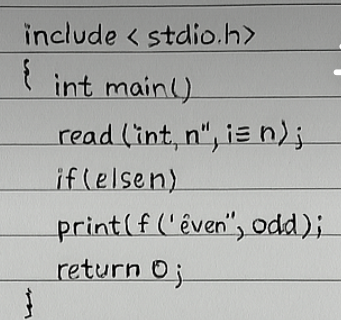 include < stdio.h>
{ int main()
read ("int, n", i≡ n);
if(elsen)
print(f ('even", odd);
return 0;
}